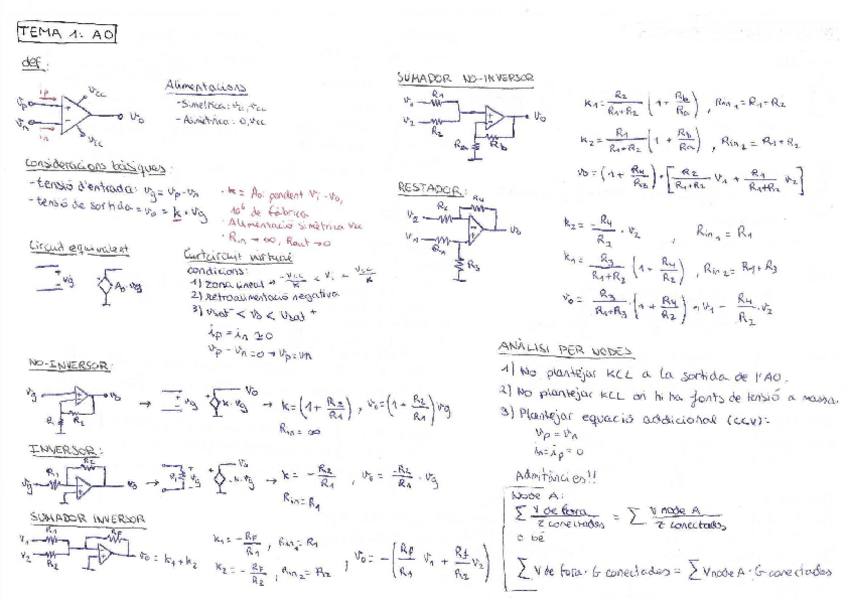 TEMA 1: AO
def:
ip
vp
in
vn
vcc
vcc
vo
Alimentacions
- Simètrica: vcc, vcc
- Asimètrica: 0, vcc
Consideracions bàsiques:
- tensió d'entrada: vg = vp - vn
- tensió de sortida = vo = k · vg
· k = Ao: pendent vi - vo,
10⁶ de fàbrica
· Alimentació simètrica vcc
· Rin → ∞, Rout → 0
Circuit equivalent
vg
Ao · vg
Curtcircuit virtual
condicions:
1) zona lineal → -vcc/k < vi < vcc/k
2) retroalimentació negativa
3) vsat⁻ < vo < vsat +
ip = in ≃ 0
vp - vn = 0 → vp = vn
NO-INVERSOR:
vg
R1
R2
vo
→ vg k·vg vo
→ k = (1 + R2/R1), vo = (1 + R2/R1) vg
Rin = ∞
INVERSOR:
vg
R1
R2
vo
→ k = - R2/R1, vo = -R2/R1 · vg
Rin = R1
SUMADOR INVERSOR
v1
R1
v2
R2
RF
vo = k1 + k2
k1 = - RF/R1, Rin1 = R1
k2 = - RF/R2, Rin2 = R2
, vo = - (RF/R1 v1 + RF/R2 v2)
SUMADOR NO-INVERSOR
v1
R1
v2
R2
Ra
Rb
vo
k1 = R2/R1+R2 (1 + Rb/Ra), Rin1 = R1+R2
k2 = R1/R1+R2 (1 + Rb/Ra), Rin2 = R1+R2
RESTADOR:
v2
R2
R4
v1
R1
R3
vo
k2 = -R4/R2 · v2 , Rin1 = R1
vo = R3/R1+R3 · (1 + R4/R2) · v1 - R4/R2 · v2
ANÀLISI PER NODES
1) No plantejar KCL a la sortida de l'AO.
2) No plantejar KCL on hi ha fonts de tensió a massa.
3) Plantejar equació addicional (CCV):
vp = vn
in = ip = 0
Admitàncies!!
Node A:
∑ V de fora / z conectades = ∑ V node A / z conectades
o bé
∑ V de fora · G conectades = ∑ V node A · G conectades